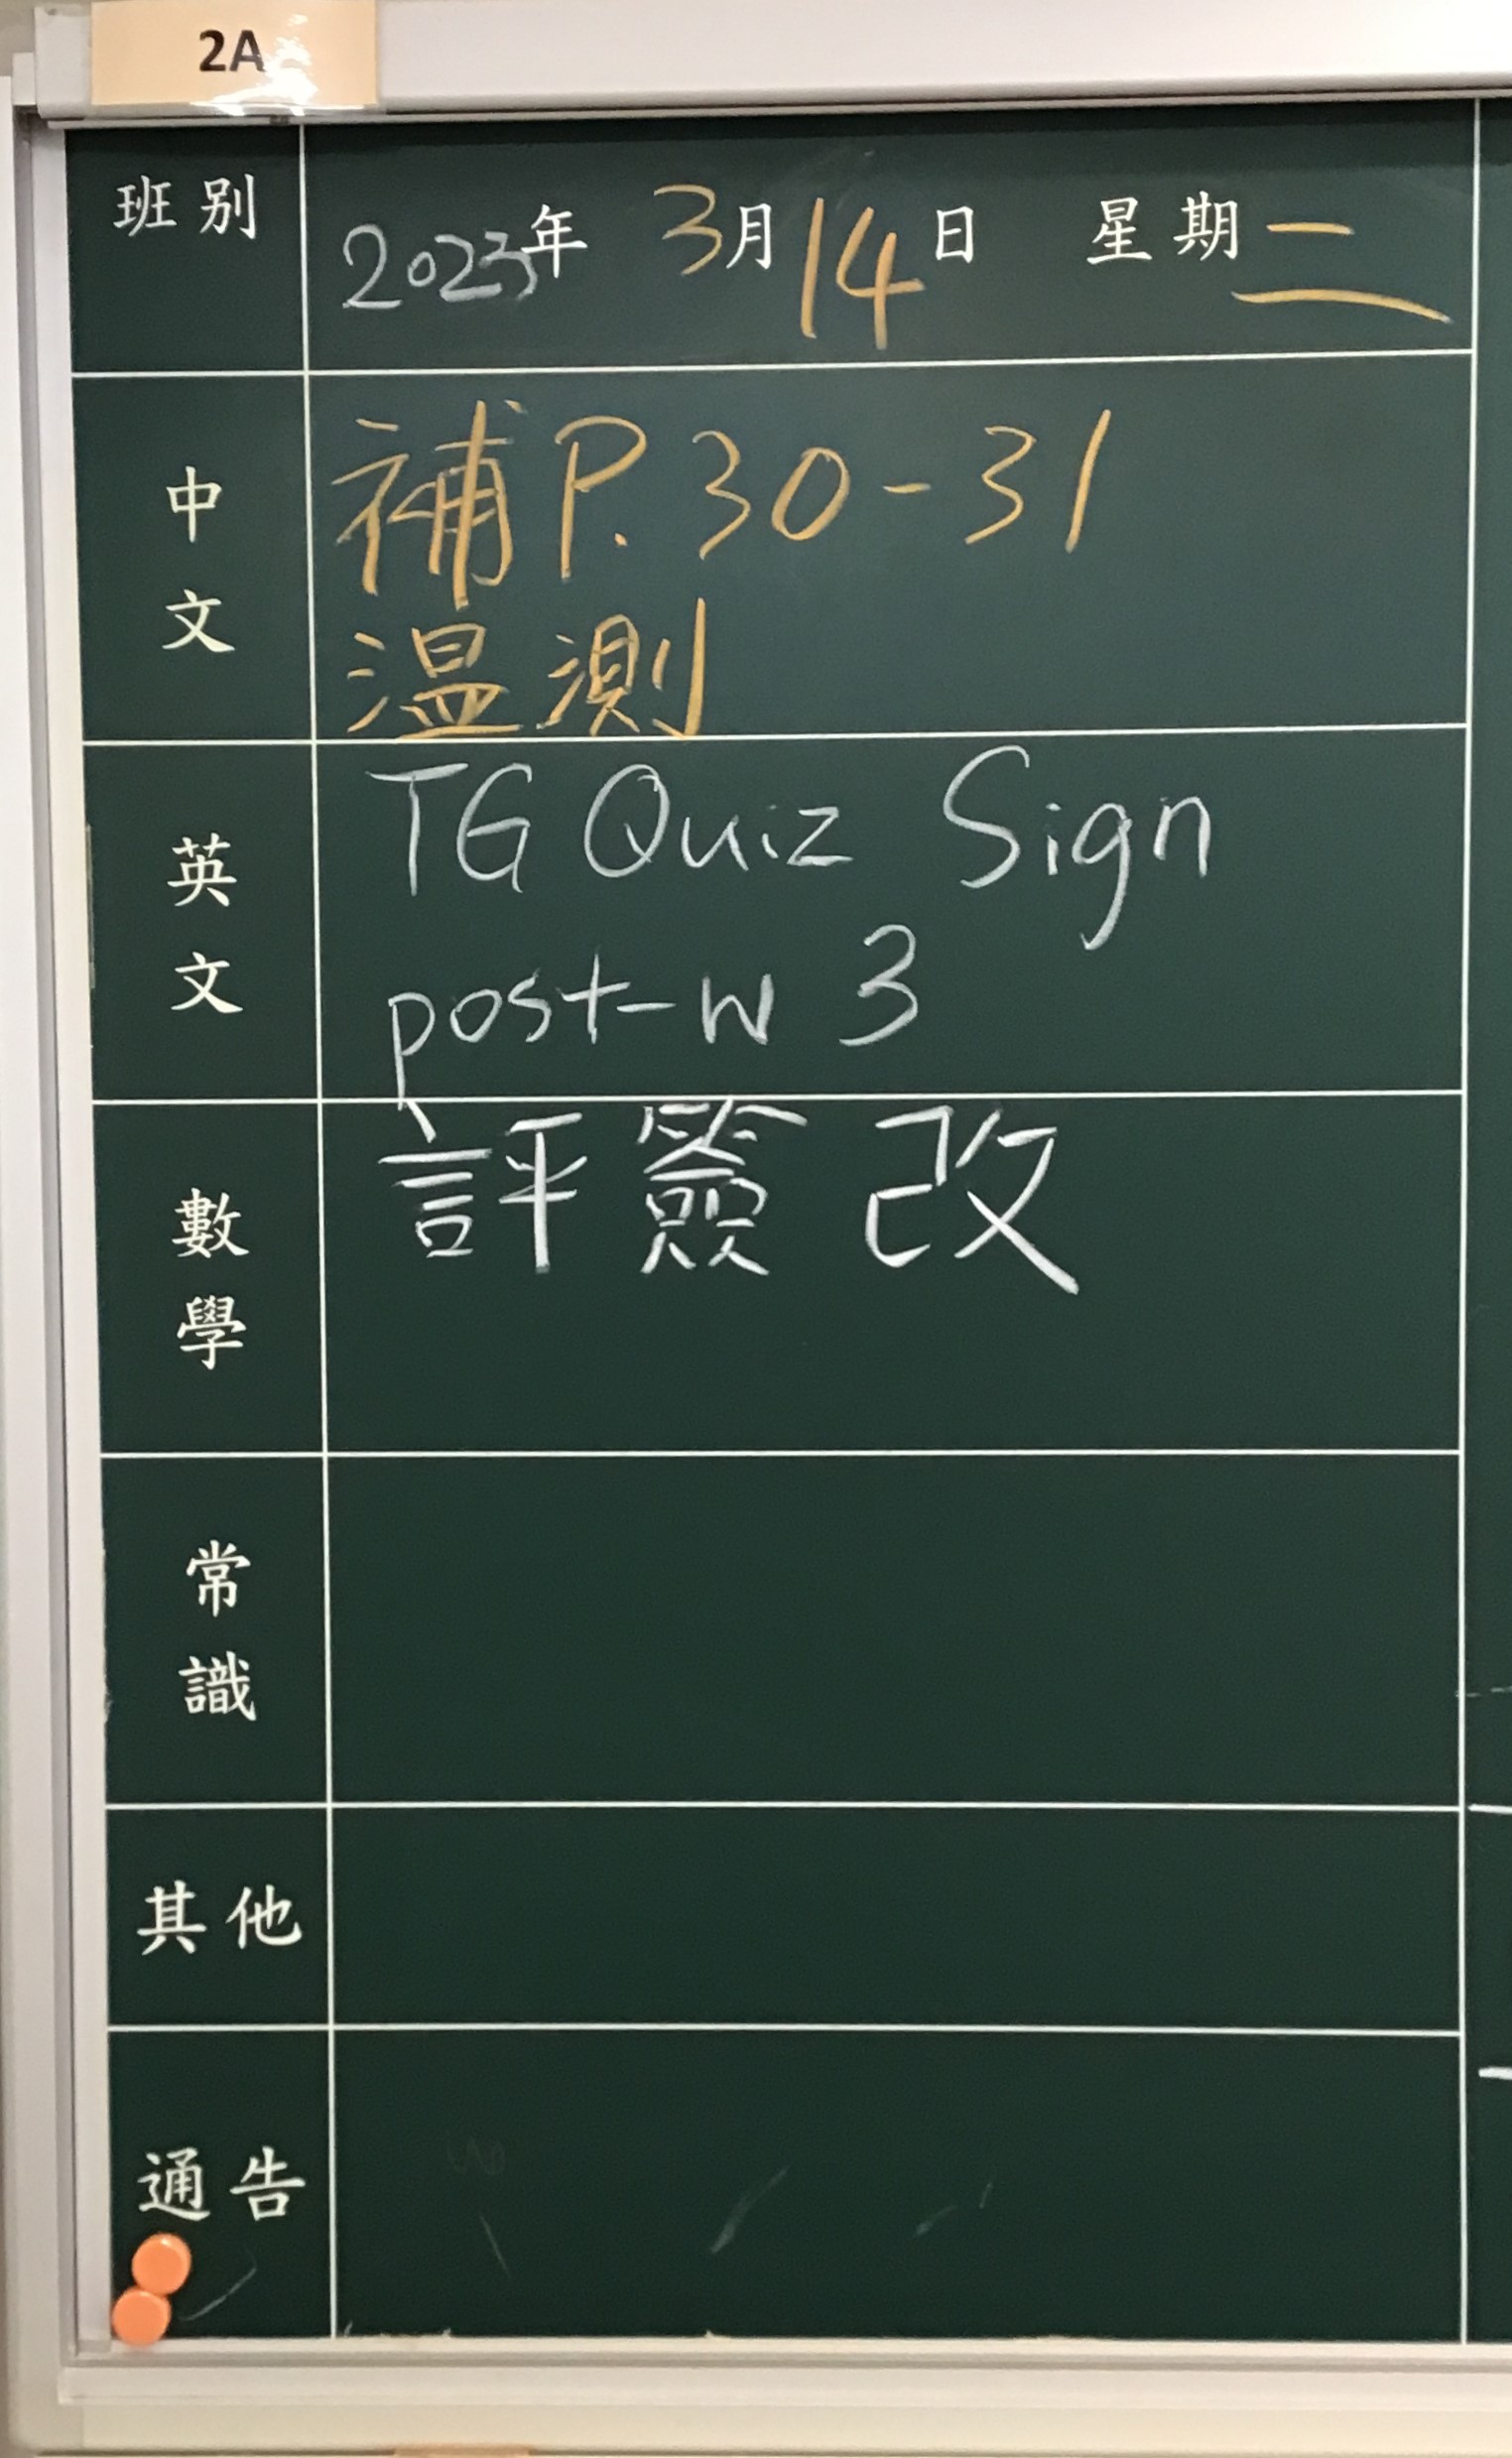 2A
班別 2023年 3月14日 星期二
中文
補P.30-31
溫測
英文
TG Quiz Sign
post-W 3
數學
評簽改
常識
其他
通告